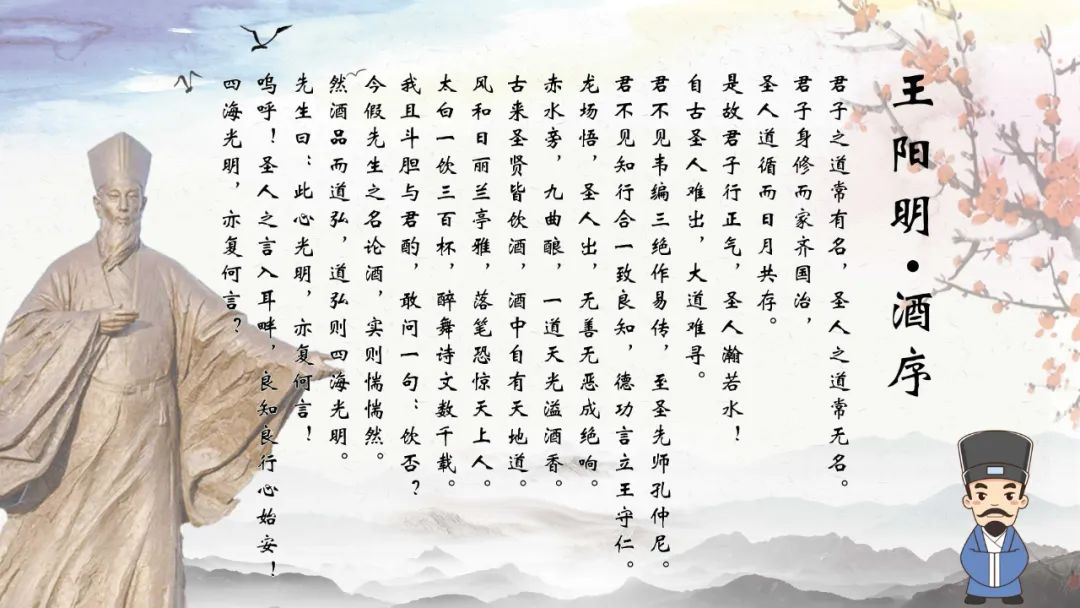 王阳明·酒序
君子之道常有名，圣人之道常无名。
君子身修而家齐国治，
圣人道循而日月共存。
是故君子行正气，圣人瀚若水！
自古圣人难出，大道难寻。
君不见韦编三绝作易传，至圣先师孔仲尼。
君不见知行合一致良知，德功言立王守仁。
龙场悟，圣人出，无善无恶成绝响。
赤水旁，九曲酿，一道天光溢酒香。
古来圣贤皆饮酒，酒中自有天地道。
风和日丽兰亭雅，落笔恐惊天上人。
太白一饮三百杯，醉舞诗文数千载。
我且斗胆与君酌，敢问一句：饮否？
今假先生之名论酒，实则惴惴然。
然酒品而道弘，道弘则四海光明。
先生曰：此心光明，亦复何言！
呜呼！圣人之言入耳畔，良知良行心始安！
四海光明，亦复何言？